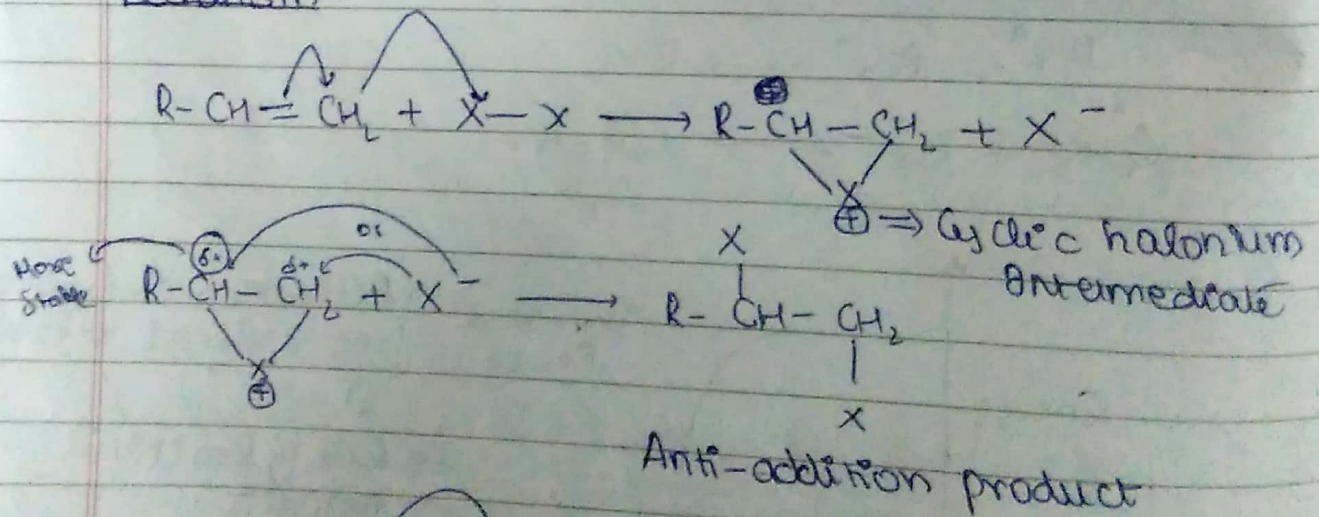 R-CH=CH₂ + X-X ⟶ R-CH-CH₂ + X⁻
X
⊕ ⇒ Cyclic halonium
Intermediate
More
Stable
δ+ δ+ or
R-CH-CH₂ + X⁻ ⟶
X
⊕
X
R-CH-CH₂
X
Anti-addition product